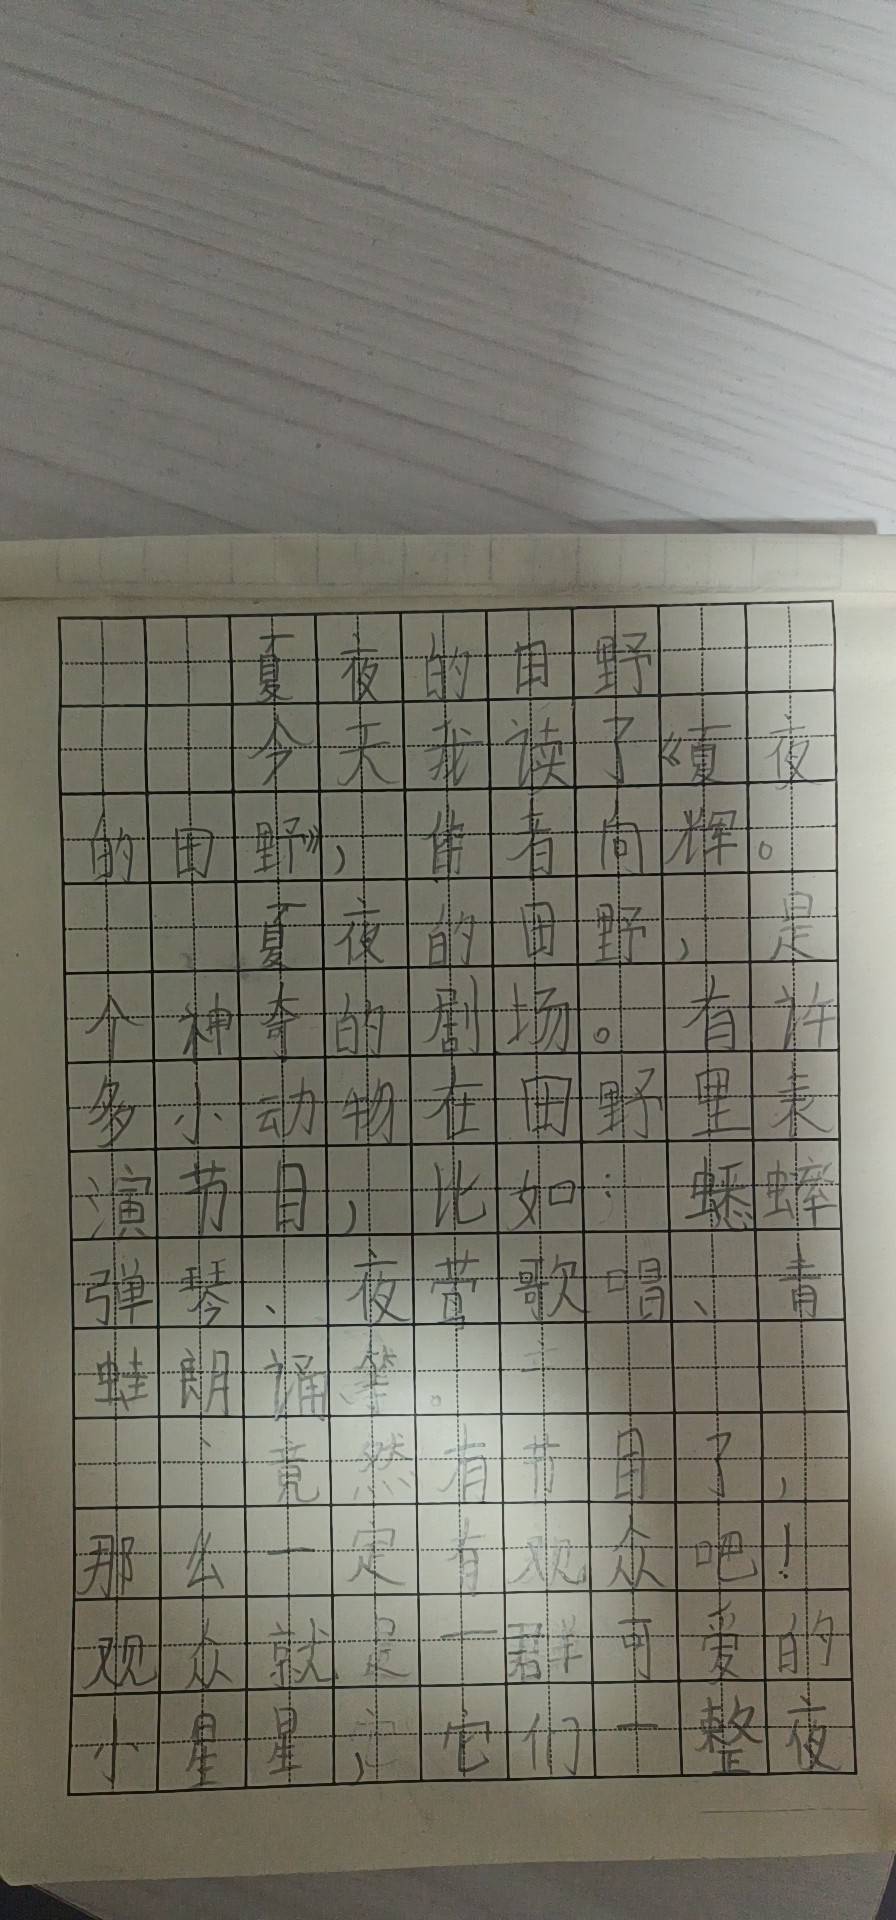 夏夜的田野
今天我读了《夏夜
的田野》，作者向辉。
夏夜的田野，是
个神奇的剧场。有许
多小动物在田野里表
演节目，比如：蟋蟀
弹琴、夜莺歌唱、青
蛙朗诵等。
竟然有节目了，
那么一定有观众吧！
观众就是一群可爱的
小星星，它们一整夜